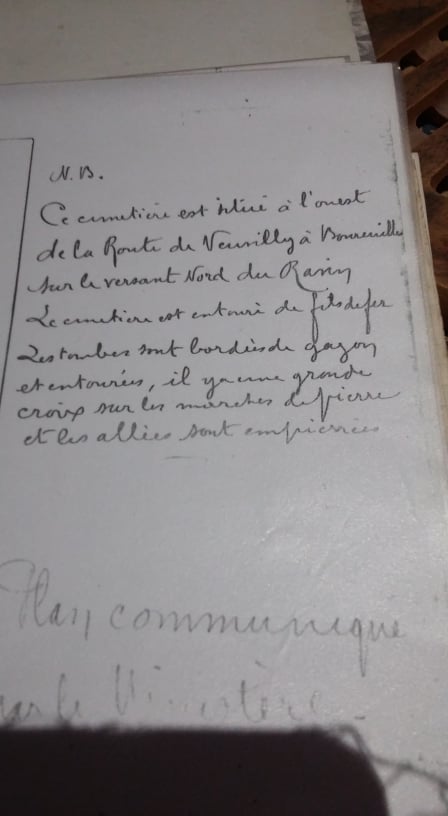 N.B.
Ce cimetière est situé à l'ouest
de la Route de Neuvilly à Boureuilles
sur le versant Nord du Ravin
Le cimetière est entouré de fils de fer
Les tombes sont bordées de gazon
et entourées, il y a une grande
croix sur les marches de pierre
et les allées sont empierrées
Plan communiqué
par le Ministère.